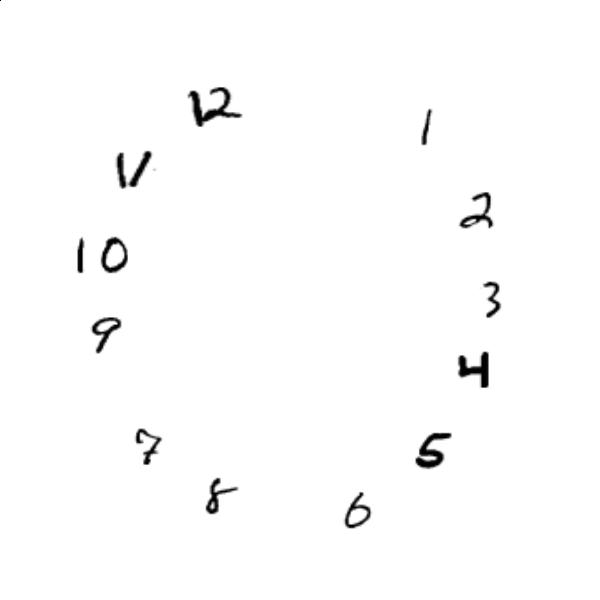 12
1
11
2
10
3
9
4
7
5
8
6